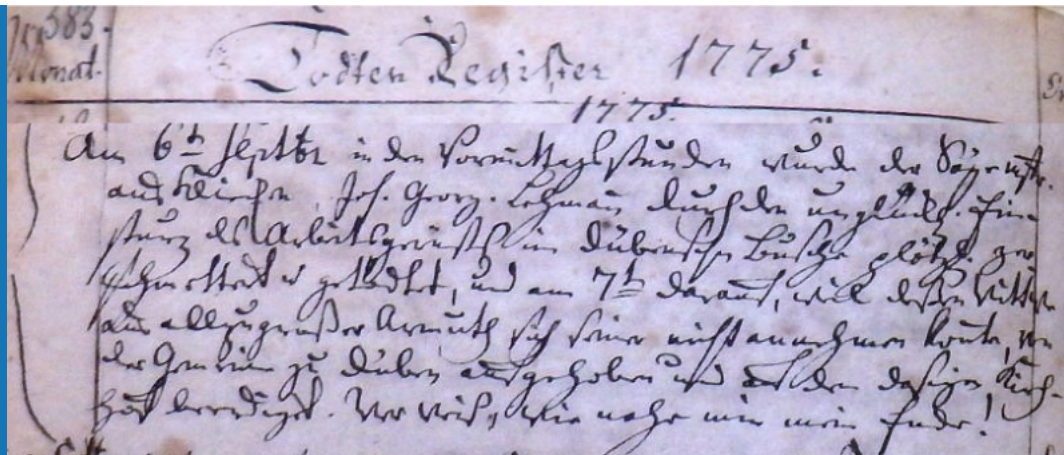 383.
Monat.
Todten Register 1775.
1775.
Am 6t Septbr in den Vormittagsstunden wurde der
aus Joh. Georg Lehmann durch den unglückl. Ein-
sturz des Arbeitsgerüsts im Dübenschen Busche plötzl. zer-
schmettert u getödtet, und am 7t darauf, weil deßen
aus allzugroßer Armuth sich seiner nicht annehmen konte, von
der Gemeine zu Düben aufgehoben und auf den dasigen Kirch-
hof beerdiget. Wer weiß, wie nahe mir mein Ende!